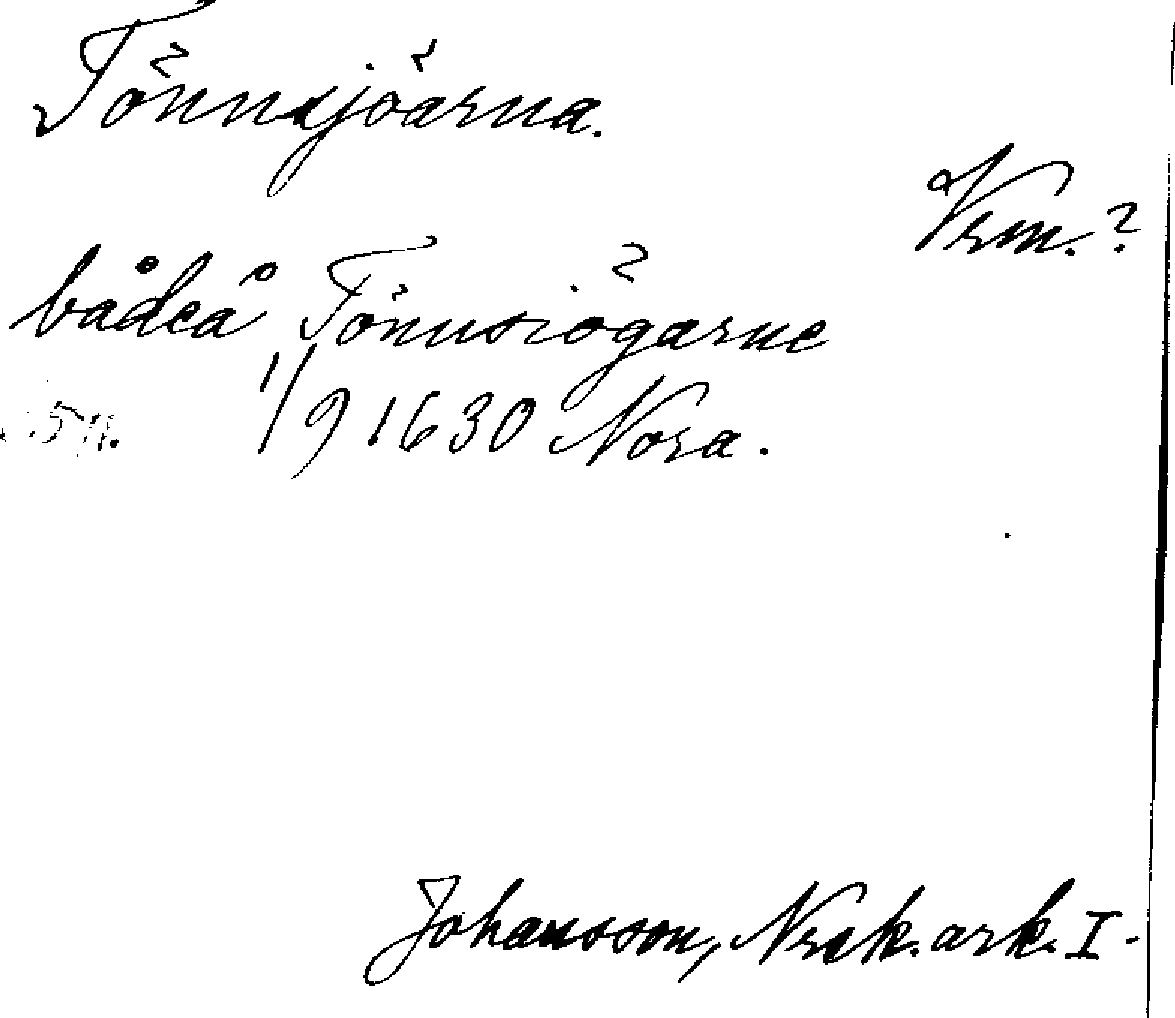 Tönnsjöarna.
Vrm.?
bådeå Tönnsiögarne
1/9 1630 Nora.
Johansson, Nrsk. ark. I.